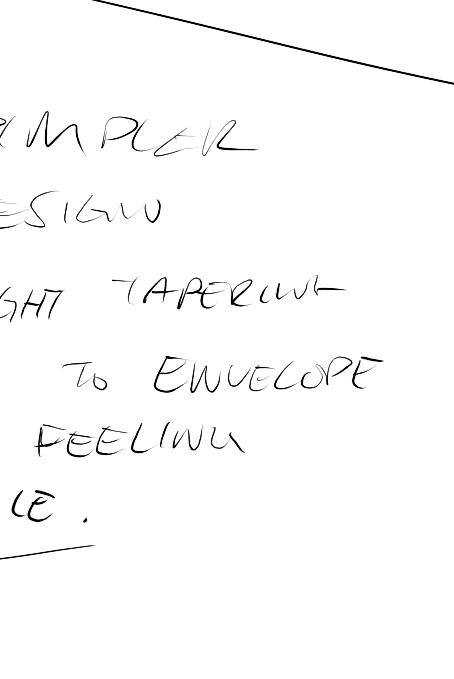 IMPLER
ESIGN
GHT TAPERING
TO ENVELOPE
FEELING
LE.